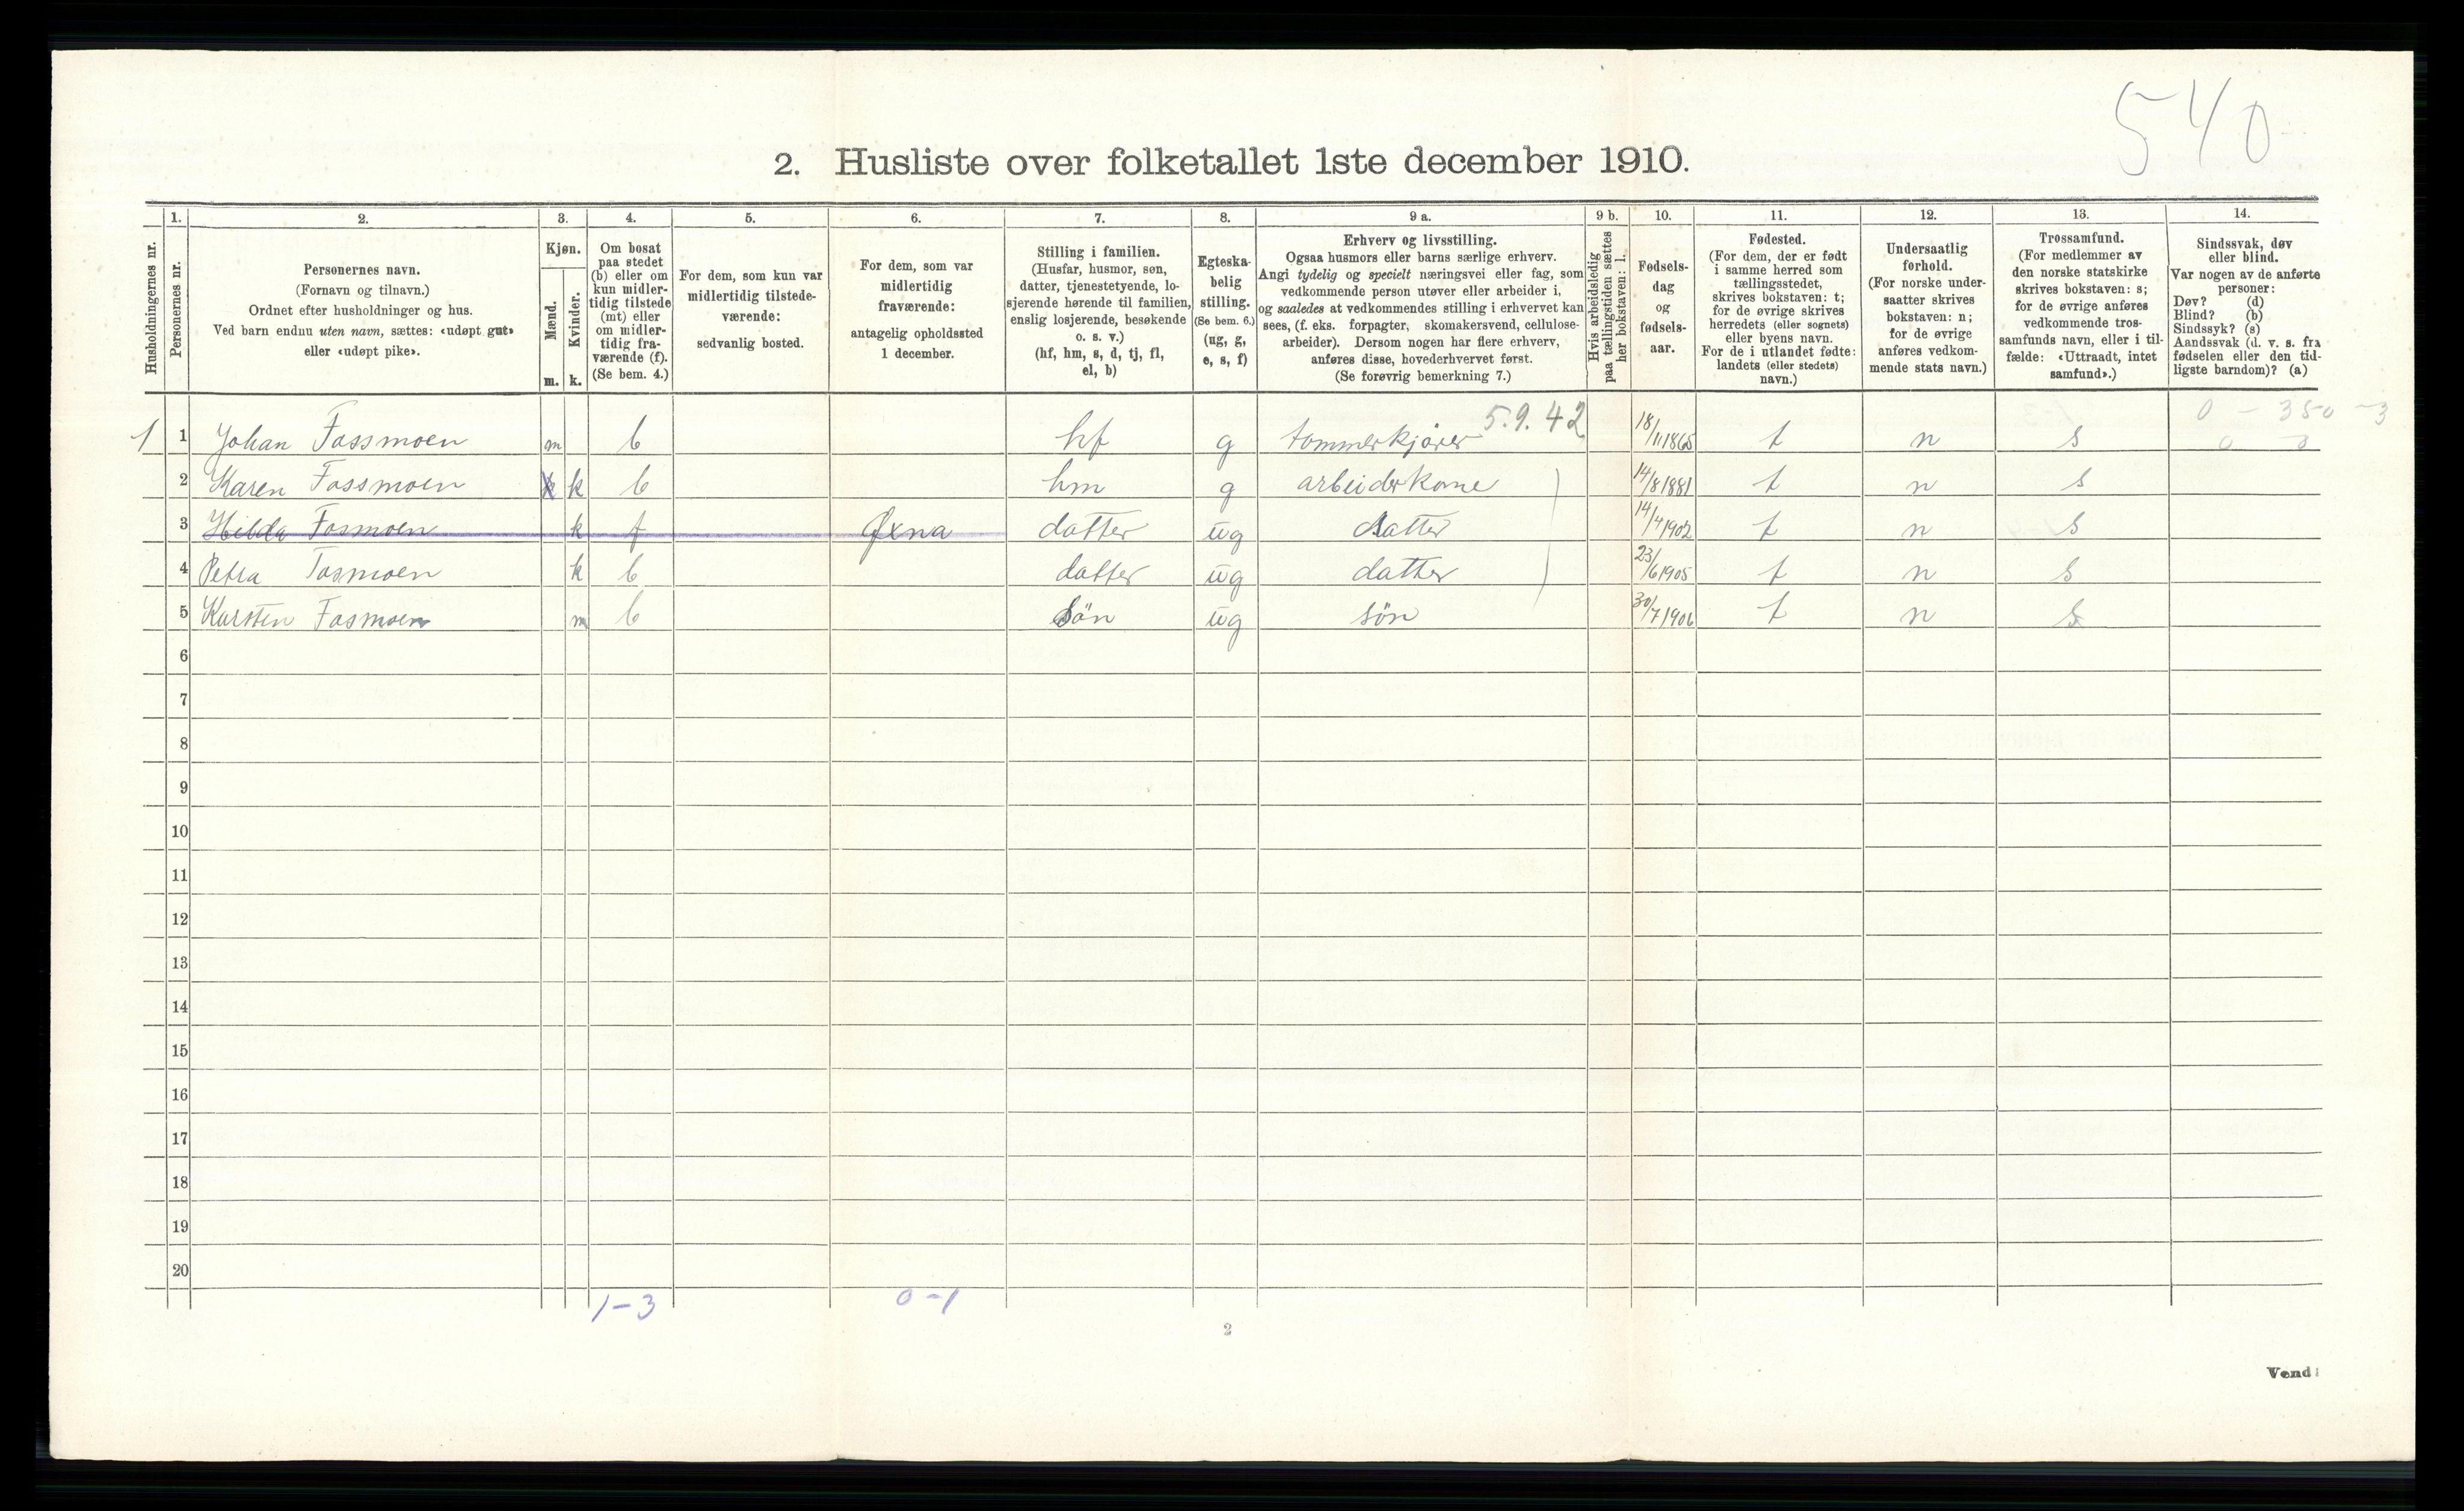 540
2. Husliste over folketallet 1ste december 1910.
Husholdningernes nr.
1.
Personernes nr.
2.
Personernes navn.
(Fornavn og tilnavn.)
Ordnet efter husholdninger og hus.
Ved barn endnu uten navn, sættes: «udøpt gut»
eller «udøpt pike».
3.
Kjøn.
Mænd.
m.
Kvinder.
k.
4.
Om bosat
paa stedet
(b) eller om
kun midler-
tidig tilstede
(mt) eller
om midler-
tidig fra-
værende (f).
(Se bem. 4.)
5.
For dem, som kun var
midlertidig tilstede-
værende:
sedvanlig bosted.
6.
For dem, som var
midlertidig
fraværende:
antagelig opholdssted
1 december.
7.
Stilling i familien.
(Husfar, husmor, søn,
datter, tjenestetyende, lo-
sjerende hørende til familien,
enslig losjerende, besøkende
o. s. v.)
(hf, hm, s, d, tj, fl,
el, b)
8.
Egteska-
belig
stilling.
(Se bem. 6.)
(ug, g,
e, s, f)
9 a.
Erhverv og livsstilling.
Ogsaa husmors eller barns særlige erhverv.
Angi tydelig og specielt næringsvei eller fag, som
vedkommende person utøver eller arbeider i,
og saaledes at vedkommendes stilling i erhvervet kan
sees, (f. eks. forpagter, skomakersvend, cellulose-
arbeider). Dersom nogen har flere erhverv,
anføres disse, hovederhvervet først.
(Se forøvrig bemerkning 7.)
9 b.
Hvis arbeidsledig
paa tællingstiden sættes
her bokstaven: l.
10.
Fødsels-
dag
og
fødsels-
aar.
11.
Fødested.
(For dem, der er født
i samme herred som
tællingsstedet,
skrives bokstaven: t;
for de øvrige skrives
herredets (eller sognets)
eller byens navn.
For de i utlandet fødte:
landets (eller stedets)
navn.)
12.
Undersaatlig
forhold.
(For norske under-
saatter skrives
bokstaven: n;
for de øvrige
anføres vedkom-
mende stats navn.)
13.
Trossamfund.
(For medlemmer av
den norske statskirke
skrives bokstaven: s;
for de øvrige anføres
vedkommende tros-
samfunds navn, eller i til-
fælde: «Uttraadt, intet
samfund».)
14.
Sindssvak, døv
eller blind.
Var nogen av de anførte
personer:
Døv? (d)
Blind? (b)
Sindssyk? (s)
Aandssvak (d. v. s. fra
fødselen eller den tid-
ligste barndom)? (a)
5.9.42
0 - 350 - 3
1 1 Johan Fossmoen m b hf g tømmerkjører 18/11 1865 t n s
2 Karen Fossmoen k b hm g arbeiderkone 14/8 1881 t n s
3 Hilda Fosmoen k f Øxna datter ug datter 14/4 1902 t n s
4 Petra Fosmoen k b datter ug datter 23/6 1905 t n s
5 Karsten Fosmoen m b sön ug sön 30/7 1906 t n s
6
7
8
9
10
11
12
13
14
15
16
17
18
19
20
1-3 0-1
2
Vend